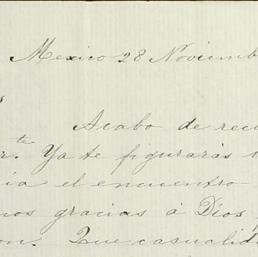 Mexico 28 Noviemb
Acabo de reci
te. Ya te figurarás
ia el encuentro
nos gracias á Dios
on. Que casualid